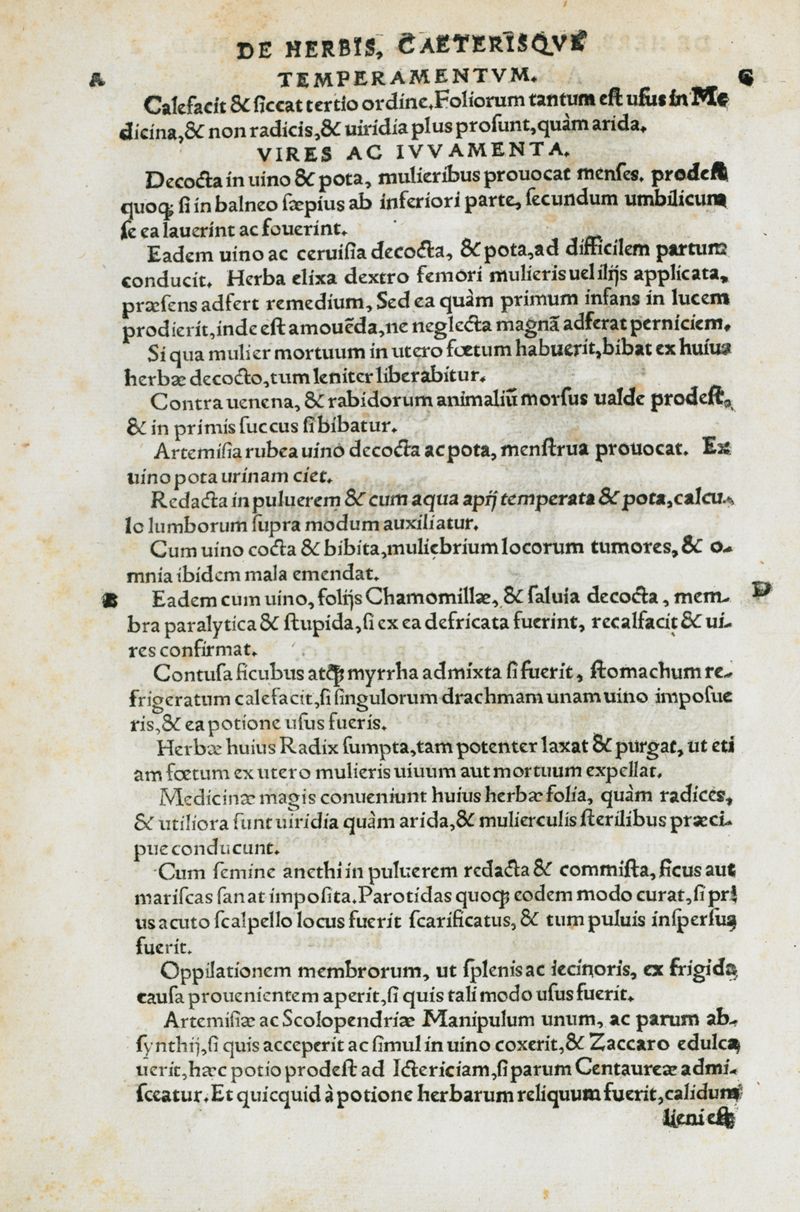 DE HERBIS, CAETERISQVE
A TEMPERAMENTVM. C
Calefacit & ſiccat tertio ordine. Foliorum tantum eſt uſus in Me
dicina, & non radicis, & uiridia plus proſunt, quàm arida.
VIRES AC IVVAMENTA.
Decocta in uino & pota, mulieribus prouocat menſes. prodeſt
quoqꝫ ſi in balneo ſæpius ab inferiori parte, ſecundum umbilicum
ſe ea lauerint ac fouerint.
Eadem uino ac ceruiſia decocta, & pota, ad difficilem partum
conducit. Herba elixa dextro femori mulieris uel ilijs applicata,
præſens adfert remedium, Sed ea quàm primum infans in lucem
prodierit, inde eſt amouẽda, ne neglecta magnã adferat perniciem.
Si qua mulier mortuum in utero fœtum habuerit, bibat ex huius
herbæ decocto, tum leniter liberabitur.
Contra uenena, & rabidorum animaliũ morſus ualde prodeſt,
& in primis ſuccus ſi bibatur.
Artemiſia rubea uino decocta ac pota, menſtrua prouocat. Ex
uino pota urinam ciet.
Redacta in puluerem & cum aqua apij temperata & pota, calcu-
lo lumborum ſupra modum auxiliatur.
Cum uino cocta & bibita, muliebrium locorum tumores, & o-
mnia ibidem mala emendat.
B Eadem cum uino, folijs Chamomillæ, & ſaluia decocta, mem- D
bra paralytica & ſtupida, ſi ex ea defricata fuerint, recalfacit & ui-
res confirmat.
Contuſa ficubus atqꝫ myrrha admixta ſi fuerit, ſtomachum re-
frigeratum calefacit, ſi ſingulorum drachmam unam uino impoſue
ris, & ea potione uſus fueris.
Herbæ huius Radix ſumpta, tam potenter laxat & purgat, ut eti
am fœtum ex utero mulieris uiuum aut mortuum expellat.
Medicinæ magis conueniunt huius herbæ folia, quàm radices,
& utiliora ſunt uiridia quàm arida, & mulierculis ſterilibus præci-
pue conducunt.
Cum ſemine anethi in puluerem redacta & commiſta, ficus aut
mariſcas ſanat impoſita. Parotidas quoqꝫ eodem modo curat, ſi pri
us acuto ſcalpello locus fuerit ſcarificatus, & tum puluis inſperſus
fuerit.
Oppilationem membrorum, ut ſplenis ac iecinoris, ex frigida
cauſa prouenientem aperit, ſi quis tali modo uſus fuerit.
Artemiſiæ ac Scolopendriæ Manipulum unum, ac parum ab-
ſynthij, ſi quis acceperit ac ſimul in uino coxerit, & Zaccaro edulca
uerit, hæc potio prodeſt ad Ictericiam, ſi parum Centaureæ admi-
ſceatur. Et quicquid à potione herbarum reliquum fuerit, calidum
lieni eſt